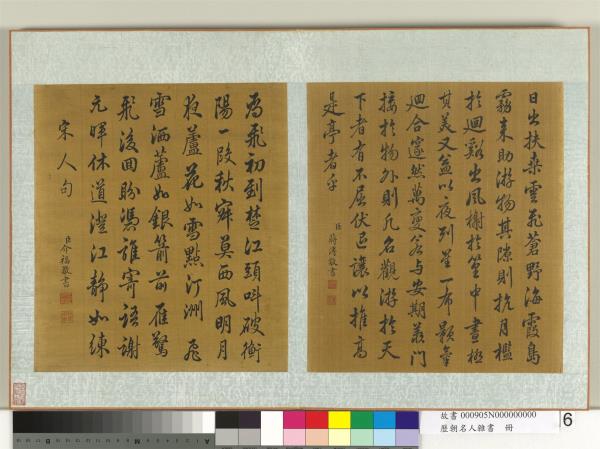 日出扶桑雲飛蒼野海霞島
霧来助游物其隙則抗月檻
於迴谿出風榭於篁中晝極
其美又益以夜列星下布顥氣
迴合邃然萬變若与安期羨門
接於物外則凡名觀游於天
下者有不屈伏退讓以推高
是亭者乎
臣蔣溥敬書
飛初到楚江頭叫破衡
陽一段秋寂莫西風明月
夜蘆花如雪點汀洲 飛
雪洒蘆如銀箭前雁驚
飛後回盼憑誰寄語謝
元暉休道澄江靜如練
宋人句
臣介福敬書
故書 000905N000000000
歷朝名人雜書 冊
6